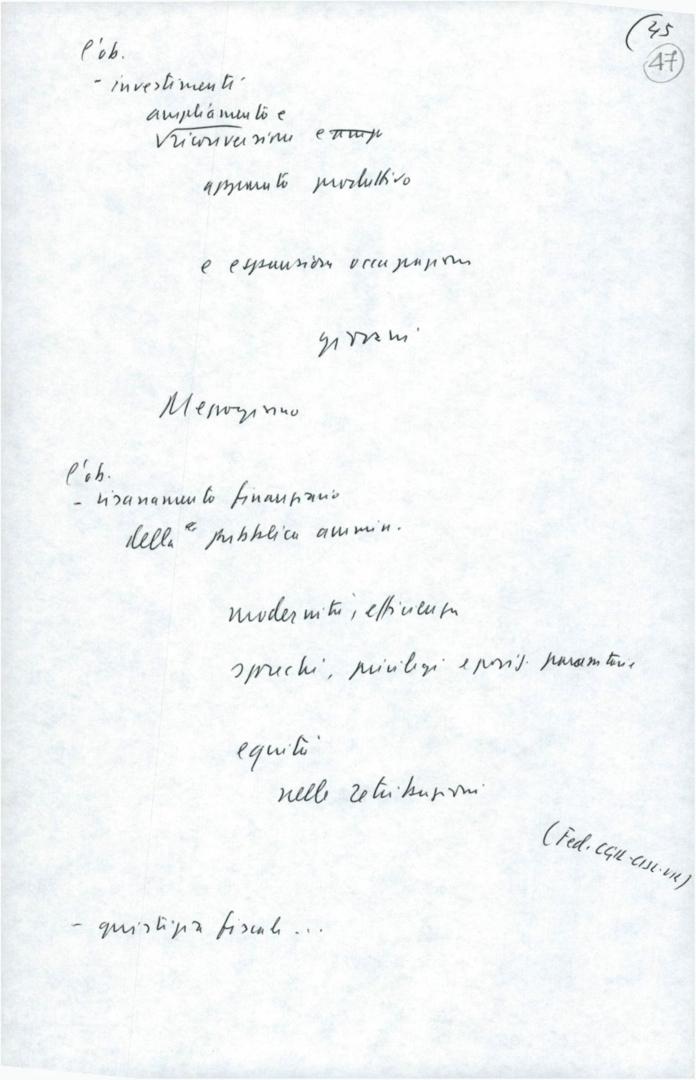 (45
47
l'ob.
- investimenti
ampliamento e
riconversione e amp
apparato produttivo
e espansione occupazione
giovani
Mezzogiorno
l'ob.
- risanamento finanziario
della pubblica ammin.
modernità, efficienza
sprechi, privilegi e posiz. parassitarie
equità
nelle retribuzioni
(Fed. CGIL-CISL-UIL)
- giustizia fiscale ...